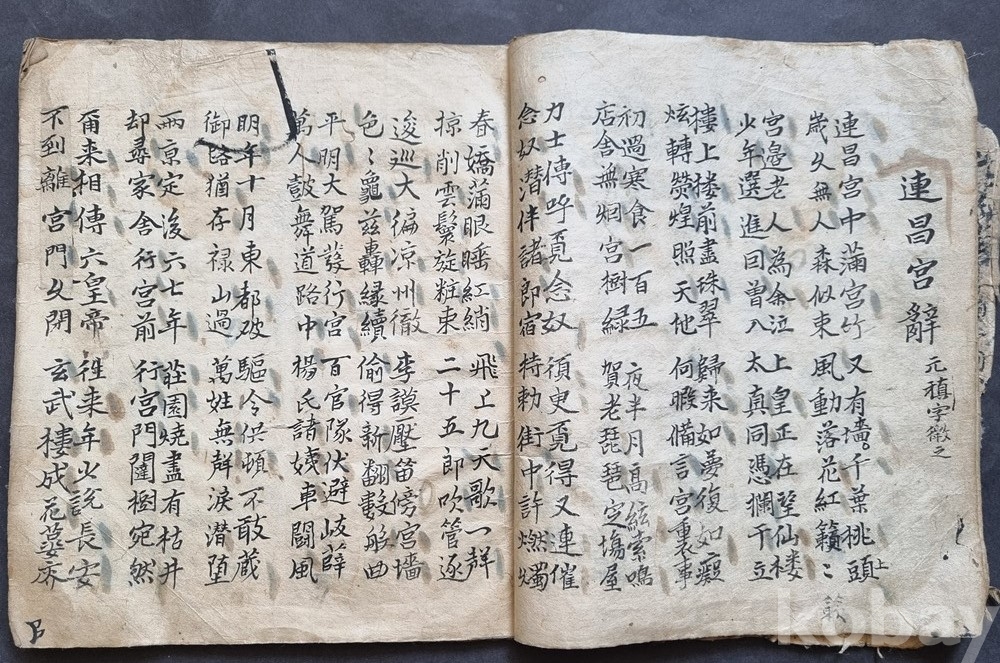 連昌宮辭 元稹字微之
連昌宮中滿宮竹 又有墻千葉桃頭上
歲久無人森似束 風動落花紅蔌〻
宮邊老人為余泣 上皇正在望仙楼
少年選進因曾入 太真同憑欄干立
樓上楼前盡珠翠 歸来如夢復如癡
炫轉熒煌照天地 何暇備言宮裏事
初過寒食一百五 夜半月高絃索鳴
店舍無烟宮樹緑 賀老琵琶定塲屋
力士傳呼覓念奴 須臾覓得又連催
念奴潜伴諸郎宿 特勅街中許燃燭
春嬌滿眼睡紅綃 飛上九天歌一聲
掠削雲鬟旋粧束 二十五郎吹管逐
逡巡大徧涼州徹 李謨壓笛傍宮墻
色〻龜兹轟緑續 偷得新翻數般曲
平明大駕發行宮 百官隊仗避岐薛
萬人鼓舞道路中 楊氏諸姨車鬪風
明年十月東都破 驅令供頓不敢蔵
御路猶存禄山過 萬姓無聲淚潜墮
兩京定後六七年 庄園燒盡有枯井
却尋家舍行宮前 行宮門闥樹宛然
爾来相傳六皇帝 徃来年少說長安
不到離宮門久閉 玄武樓成花萼廢
kobay